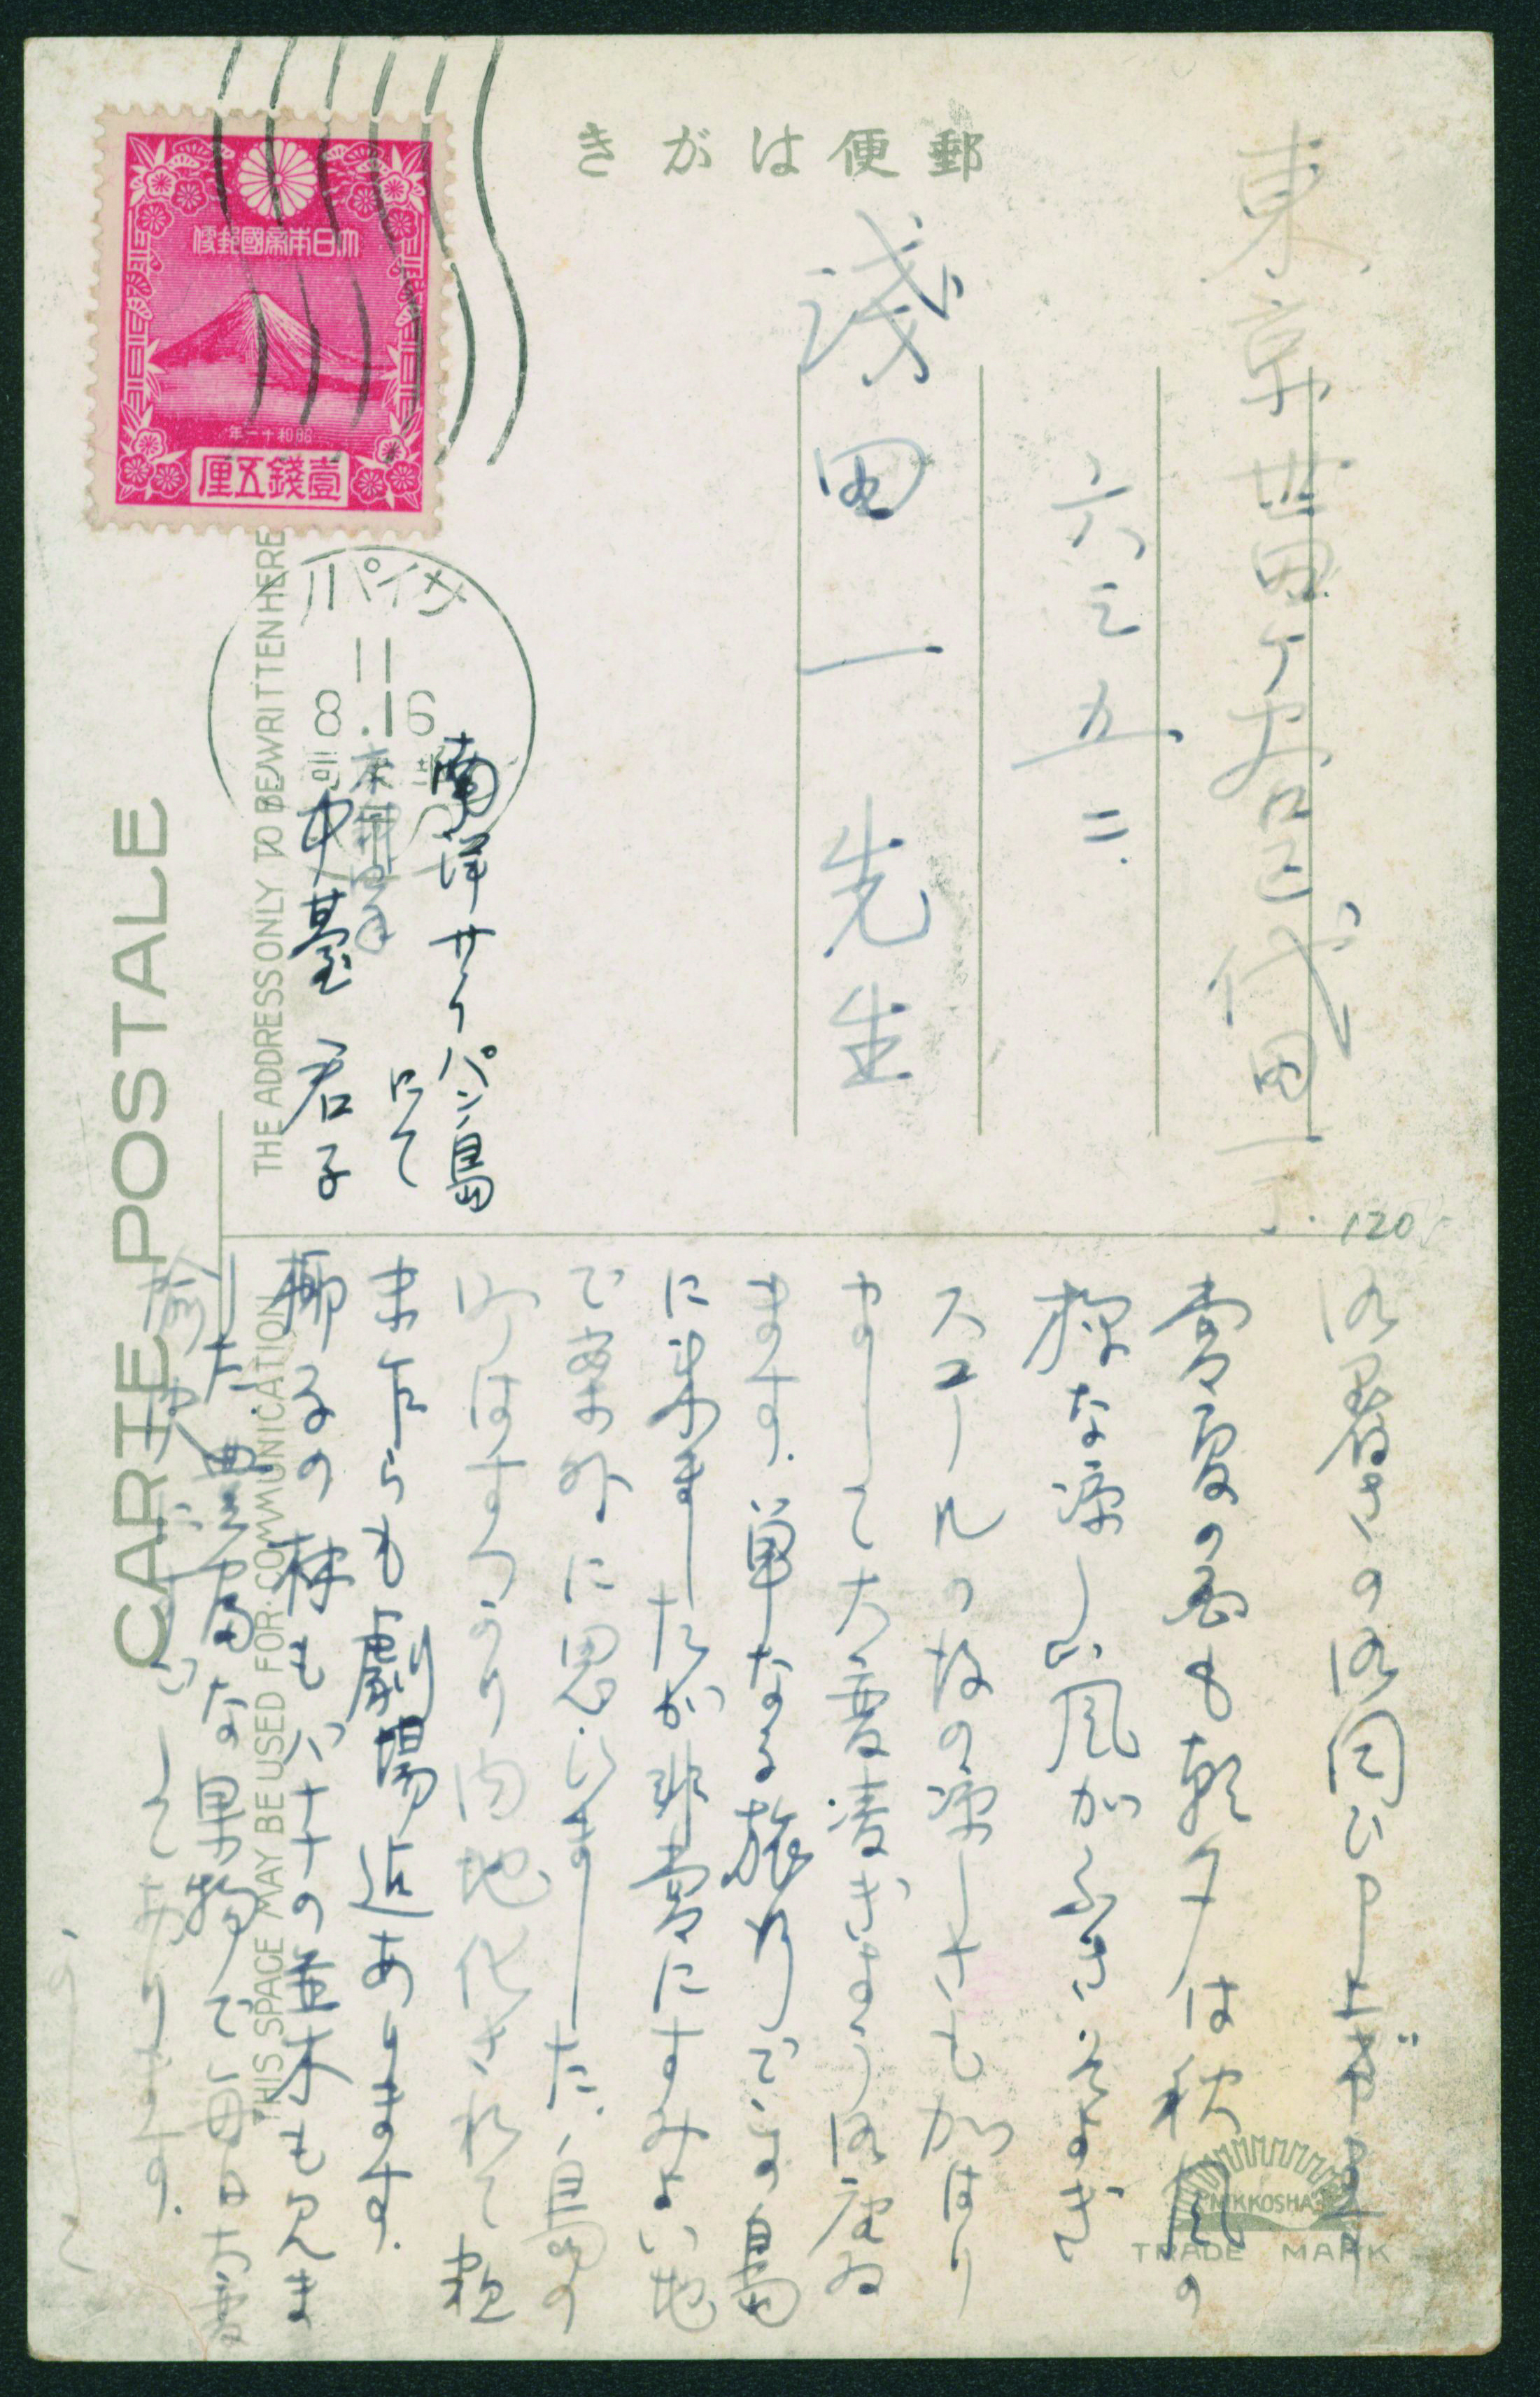 郵便はがき
大日本帝國郵便
昭和十一年
壹錢五厘
サイパン
11
8.16
東京世田ケ谷区代田一ノ
六三五二
淺田一先生
南洋サイパン島
にて
中臺君子
120
CARTE POSTALE
THE ADDRESS ONLY TO BE WRITTEN HERE
THIS SPACE MAY BE USED FOR COMMUNICATION
御暑さの御伺ひ申上げます
常夏の島も朝夕は秋風の
様な凉しい風がふきそよぎ
スコールの故の凉しさも加はり
まして大変凌ぎよう御座ゐ
ます.単なる旅行でこの島
に来ましたが非常にすみよい地
で案外に思ひました.島の
内地化されて粗
末乍らも劇場迄あります.
椰子の林もバナナの並木も見ま
した 豊富な果物で毎日お蔭
愉快に
して居ります.
NIKKOSHA
TRADE MARK